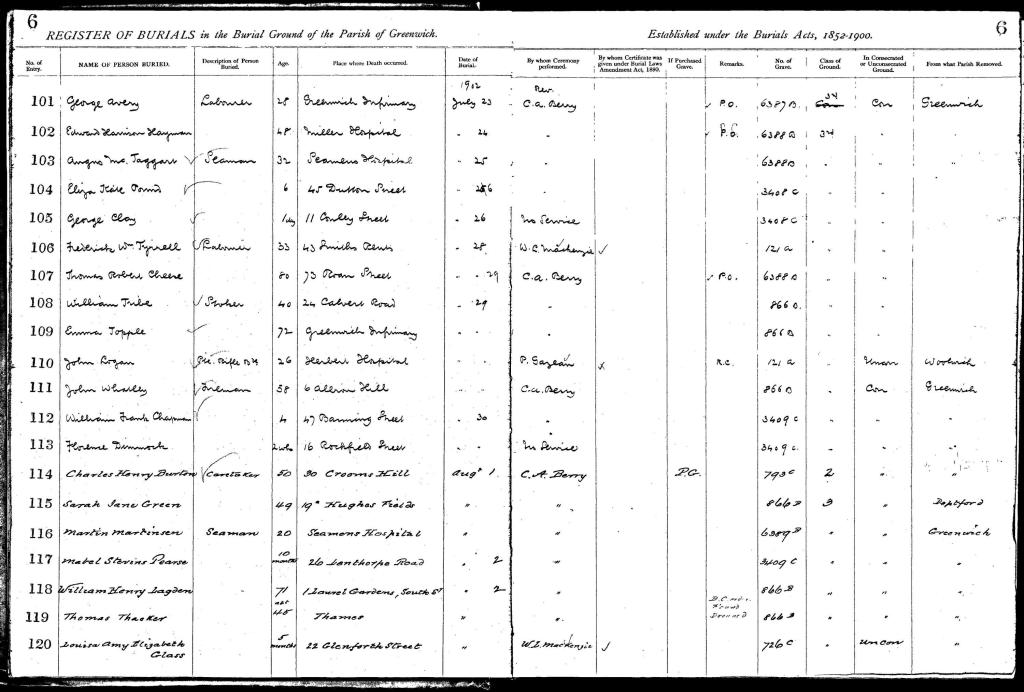 6
REGISTER OF BURIALS in the Burial Ground of the Parish of Greenwich. Established under the Burials Acts, 1852-1900. 6
No. of Entry. NAME OF PERSON BURIED. Description of Person Buried. Age. Place where Death occurred. Date of Burial. By whom Ceremony performed. By whom Certificate was given under Burial Laws Amendment Act, 1880. If Purchased Grave. Remarks. No. of Grave. Class of Ground. In Consecrated or Unconsecrated Ground. From what Parish Removed.
1902 Rev.
101 George Avery Labourer 28 Greenwich Infirmary July 23 C.A. Berry P.O. 6387 B 34 Con Greenwich
102 Edward Harrison Hayman 48 Miller Hospital " 24 " P.O. 6388 B 34 "
103 Angus Mc. Taggart Seaman 32 Seamens Hospital " 25 " 6388 B " " "
104 Eliza Kate Pound 6 45 Dutton Street " 26 " 3408 C " " "
105 George Clay 11 Conley Street " 26 No Service 3408 C " "
106 Frederick Wm Tyrrell Labourer 33 43 Smiths Rents " 28 W.L. Mackenzie 121 A " "
107 Thomas Robert Cheese 80 73 Roan Street " 29 C.A. Berry P.O. 6388 B " " "
108 William Tribe Stoker 40 24 Calvert Road " 29 " 866 B " " "
109 Emma Topple 72 Greenwich Infirmary " " " 866 B " " "
110 John Logan Pte. Rifle Bde 26 Herbert Hospital " " P. R.C. 121 A " Uncon Woolwich
111 John Whatley Fireman 58 6 Albion Hill " " C.A. Berry 866 B " Con Greenwich
112 William Frank Chapman 4 47 Banning Street " 30 " 3409 C " " "
113 Florence Dimmock 2 wks 16 Rockfield Street " " No Service 3409 C " " "
114 Charles Henry Burton Caretaker 50 30 Crooms Hill Augt 1 C.A. Berry P.G. 793 C 2 " "
115 Sarah Jane Green 49 19a Hughes Fields " " 866 B 3 " Deptford
116 Martin Martinsen Seaman 20 Seamens Hospital " " 6389 B " " Greenwich
117 Mabel Stevins Pearse 10 months 26 Lanthorpe Road " 2 " 3409 C " " "
118 William Henry Lagden 71 1 Laurel Gardens, South St " 2 " 866 B " " "
119 Thomas Thacker abt 45 Thames " " Found Drowned 866 B " " "
120 Louisa Amy Elizabeth Glass 5 months 22 Glenforth Street " W.L. Mackenzie 726 C " Uncon "